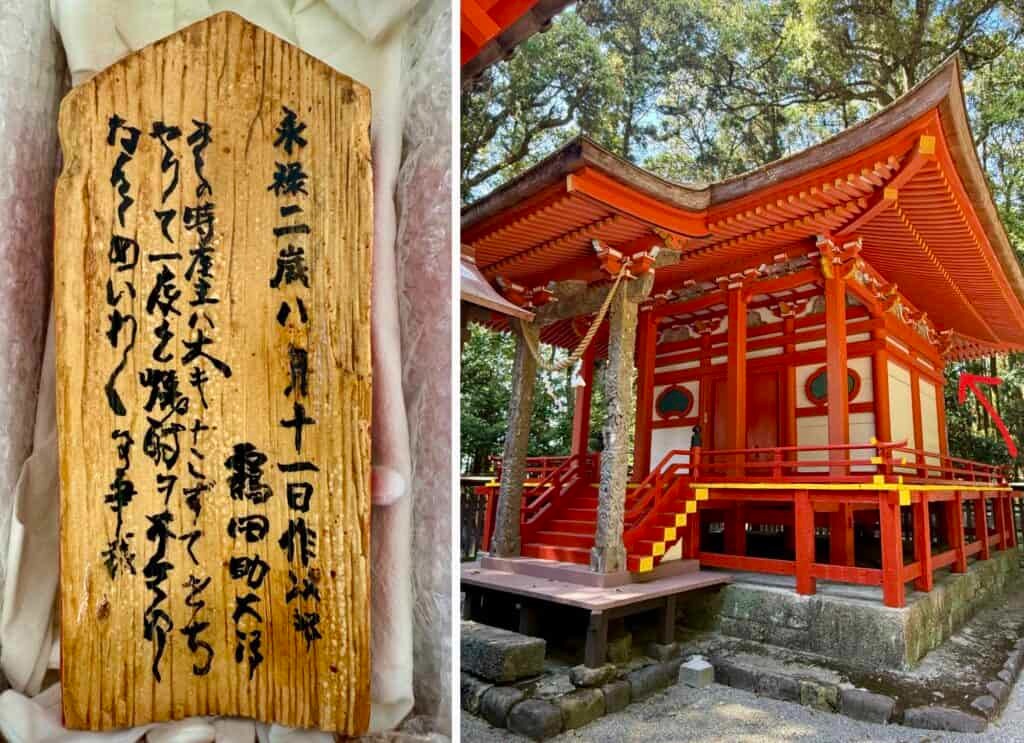 永禄二歳八月十一日作次郎
鶴田助太郎
其の時座主ハ大キナこすてをち
やりて一度も焼酎ヲ不被下候
なんともめいわくな事哉